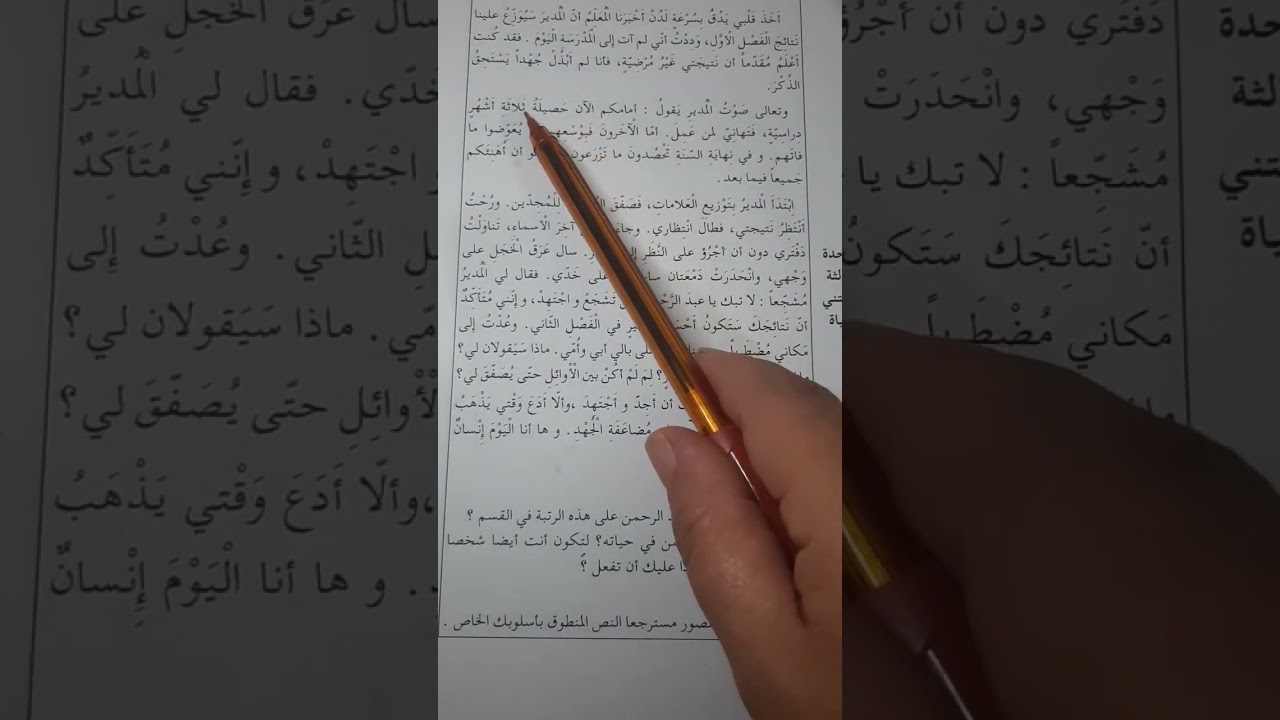 أَخَذَ قَلْبي يَدُقُّ بِسُرْعَةٍ لَدُنْ أَخْبَرَنا الْمُعَلِّمُ أنّ الْمُديرَ سَيُوَزِّعُ علينا
نَتائِجَ الْفَصْلِ الْأَوَّلِ، وَدِدْتُ أنّي لم آت إلى الْمَدْرَسَةِ الْيَوْمَ . فقد كُنت
أَعْلَمُ مُقَدَّماً أن نَتيجَتي غَيْرُ مُرْضِيَّةٍ، فأنا لم أَبْذُلْ جُهْداً يَسْتَحِقُّ
الذِّكْرَ.
وتعالى صَوْتُ الْمُدير يَقولُ : أمامكم الآن حَصيلَةُ ثَلاثَةِ أَشْهُرٍ
دراسِيّة، فَتَهانِيَّ لمن عَمِلَ. أمّا الْآخَرونَ فَبِوُسْعِهِ يُعَوِّضوا ما
فاتَهم. و في نِهايَةِ السَّنَةِ تَحْصُدونَ ما تَزْرَعون أن أُهَنِّئَكم
جَميعاً فيما بعد.
اِبْتَدَأَ الْمُديرُ بِتَوْزيعِ الْعَلاماتِ، فَصَفَّقَ لِلْمُجِدّين. ورُحْتُ
أَنْتَظِرُ نَتيجَتي، فَطالَ انْتِظاري. وجاءَ آخِرَ الْأسماءِ، تَناوَلْتُ
دَفْتَري دون أن أَجْرُؤَ على النَّظَرِ سال عَرَقُ الْخَجَلِ على
وَجْهي، وانْحَدَرَتْ دَمْعَتان على خَدّي. فقال لي الْمُديرُ
مُشَجِّعاً : لا تبك يا عبدَ تَشَجَّعْ و اجْتَهِدْ، و إنّني مُتَأَكِّدٌ
أنّ نَتائِجَكَ سَتَكونُ في الْفَصْلِ الثّاني. وعُدْتُ إلى
مَكاني مُضْطَرِباً على بالي أبي وأُمّي. ماذا سَيَقولان لي؟
لِمَ لمْ أكُنْ بين الْأَوائِلِ حتّى يُصَفَّقَ لي؟
أن أَجِدَّ و أَجْتَهِدَ ،وألّا أَدَعَ وَقْتي يَذْهَبُ
مُضاعَفَةِ الْجُهْدِ . و ها أنا الْيَوْمَ إِنْسانٌ
الرحمن على هذه الرتبة في القسم ؟
في حياته؟ لتكون أنت أيضا شخصا
عليك أن تفعل ؟
مسترجعا النص المنطوق بأسلوبك الخاص .